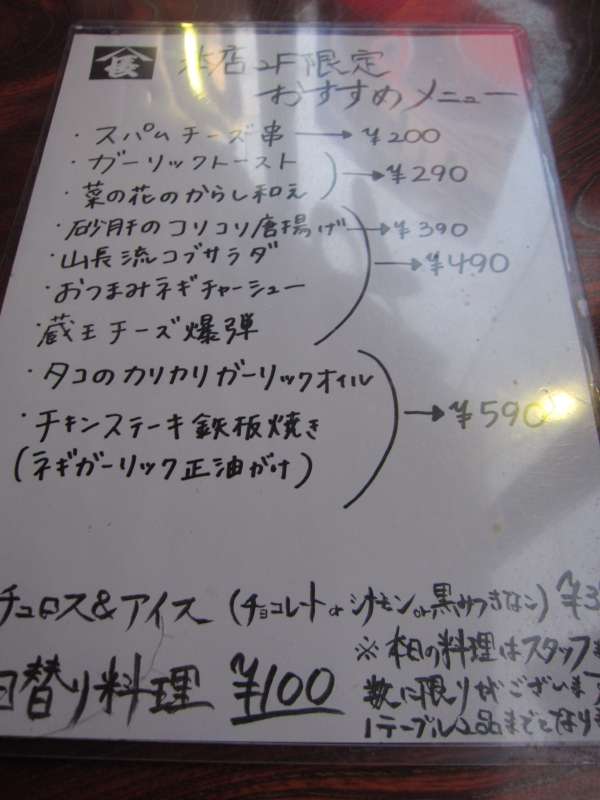 本店2F限定
おすすめメニュー
・スパムチーズ串 → ¥200
・ガーリックトースト
→ ¥290
・菜の花のからし和え
・砂肝のコリコリ唐揚げ → ¥390
・山長流コブサラダ
→ ¥490
・おつまみネギチャーシュー
・蔵王チーズ爆弾
・タコのカリカリガーリックオイル
・チキンステーキ鉄板焼き
→ ¥590
(ネギガーリック正油がけ)
チュロス&アイス (チョコレートorシナモンor黒みつきなこ) ¥3
日替り料理 ¥100
※本日の料理はスタッフ
数に限りがございます
1テーブル2品までとなりま